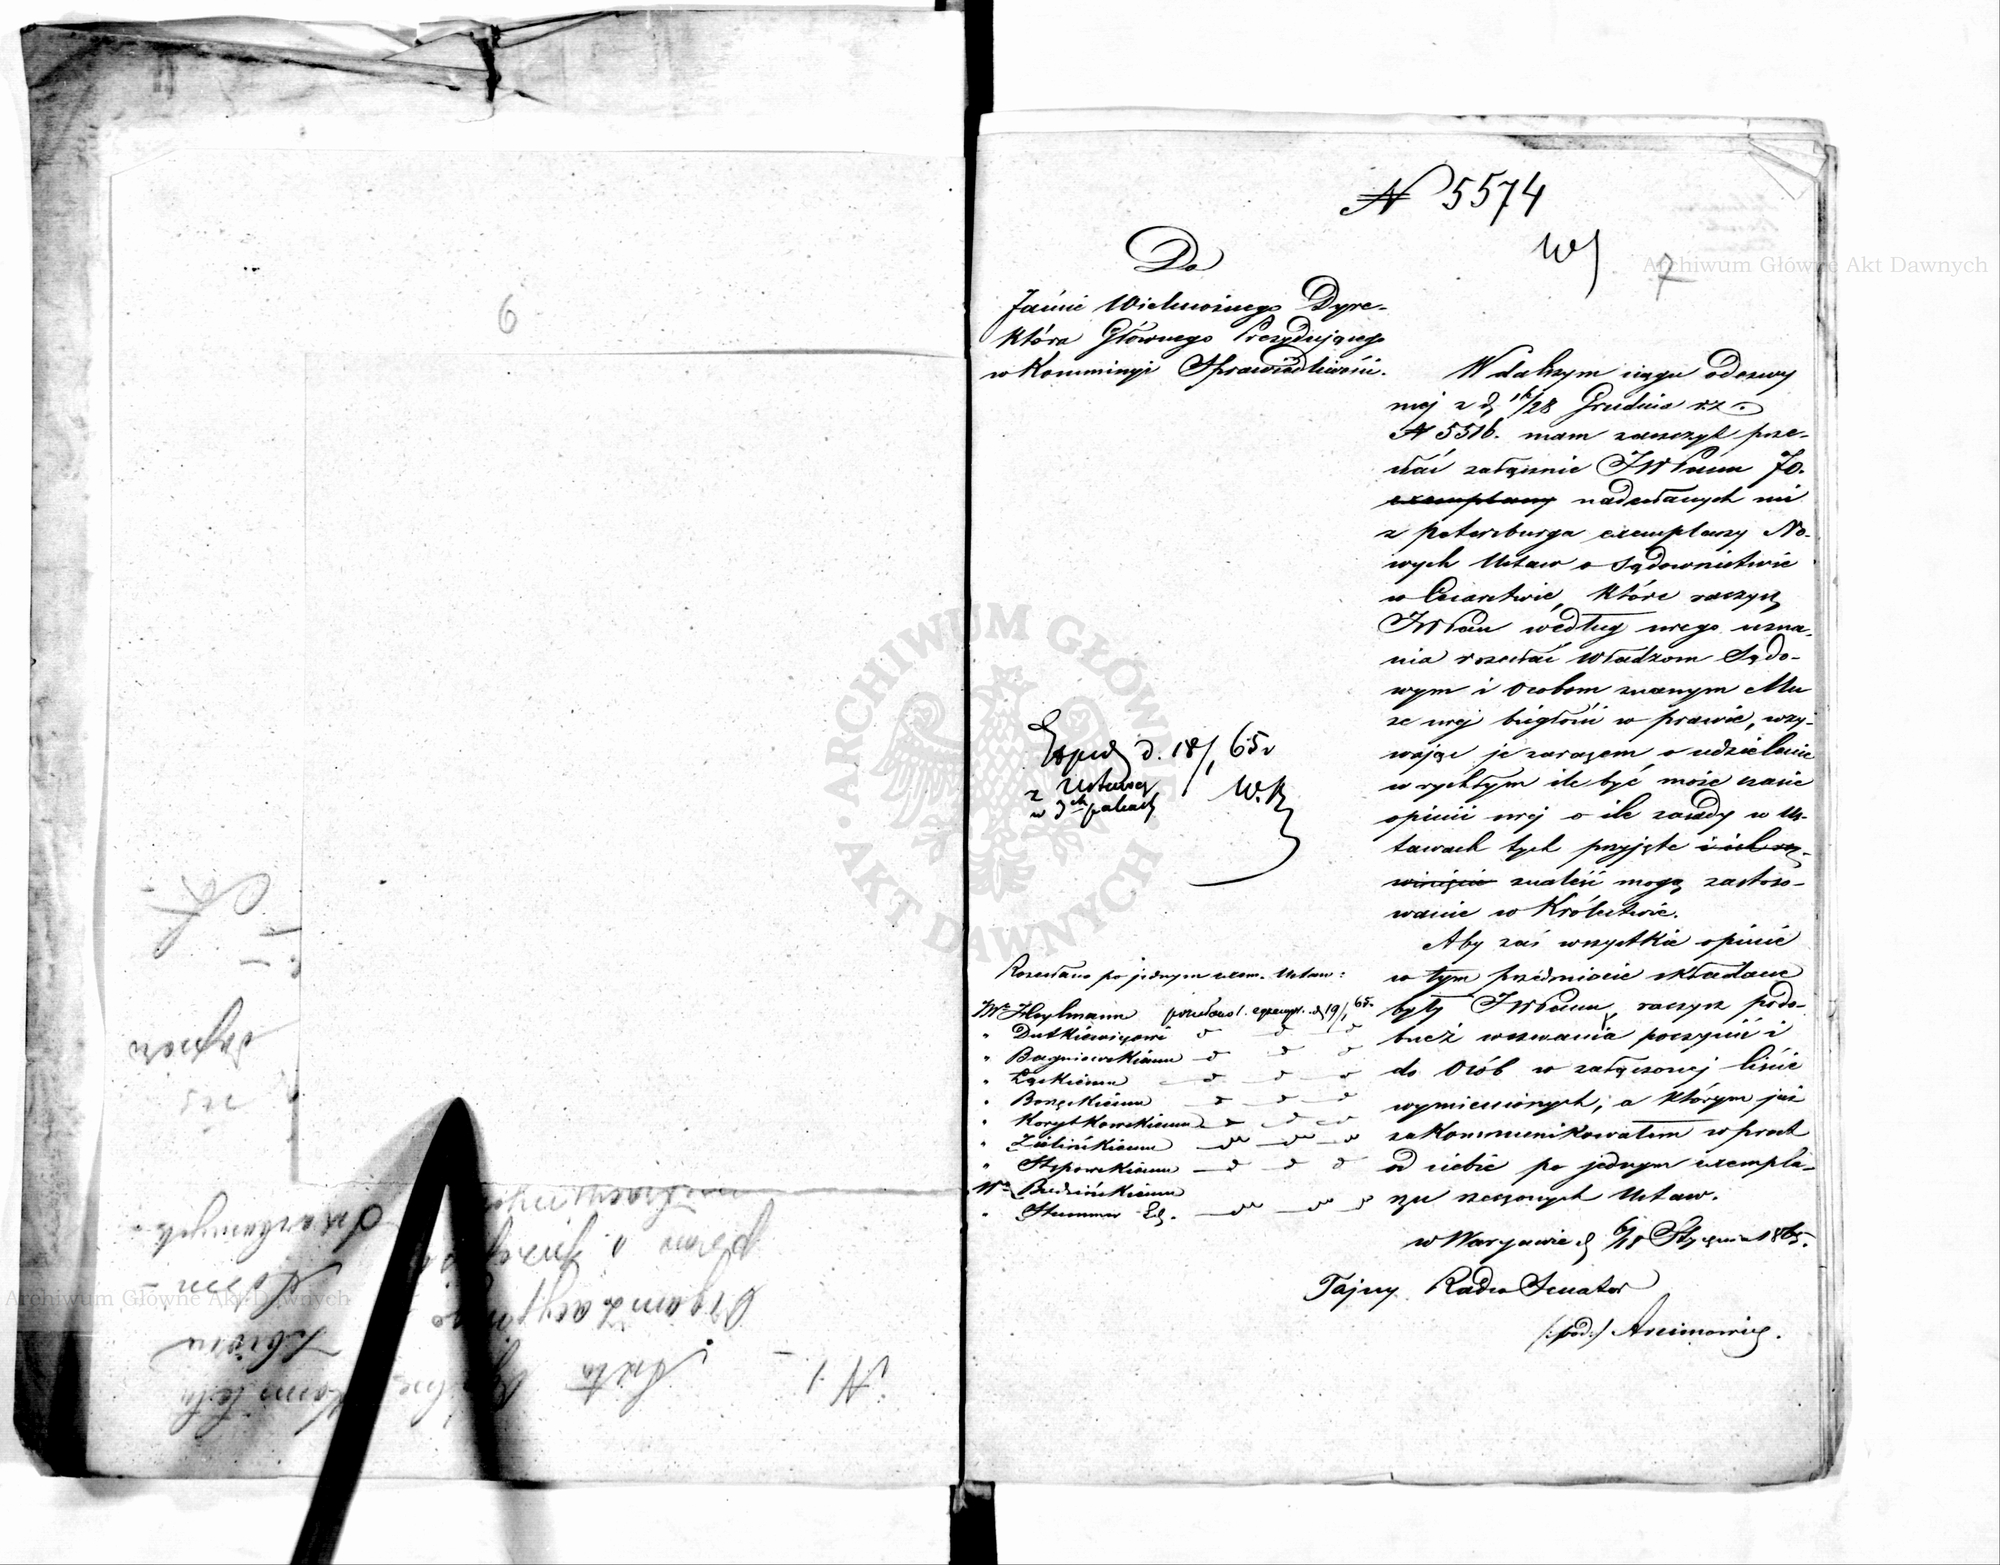 6
№ 5574
W
7
Do
Jaśnie Wielmożnego Dyre-
ktora Głównego Prezydującego
w Kommissyi Sprawiedliwości.
W dalszym ciągu odezwy
mej z d. 16/28 Grudnia r.z.
№ 5516. mam zaszczyt prze-
słać załącznie JWPanu 70.
exemplarzy nadesłanych mi
z Petersburga exemplarzy No-
wych Ustaw o Sądownictwie
w Cesarstwie, które raczysz
JWPan według swego uzna-
nia rozesłać Władzom Sądo-
wym i Osobom znanym Mu
ze swej biegłości w prawie, wzy-
wając je zarazem o udzielenie
w rychłym ile być może czasie
opinii swej o ile zasady w Us-
tawach tych przyjęte i ich roz-
winięcie znaleść mogą zastoso-
wanie w Królestwie.
Aby zaś wszystkie opinie
w tym przedmiocie składane
były JWPanu, raczysz podo-
bneż wezwania poczynić i
do Osób w załączonej liście
wymienionych, a którym już
zakommunikowałem wprost
od siebie po jednym exempla-
rzu rzeczonych Ustaw.
w Warszawie d. 6/18 Stycznia 1865.
Tajny Radca Senator
(:pod:) Arcimowicz.
Exped. d. 18/1 65 r
z Ustawą
w 3ch pakach
W.R.
Rozesłano po jednym exem. Ustaw:
JW. Heylmann przesłano 1. egzempl. d 19/1 65.
" Dutkiewiczowi d d d
" Bagniewskiemu d d d
" Łąckiemu d d d
" Borzęckiemu d d d
" Korytkowskiemu d d d
" Zielińskiemu d d d
" Stępowskiemu d d d
W. Budzińskiemu
" Stummer Ed. d d d
№ 1
Akta
Organizacyjnego